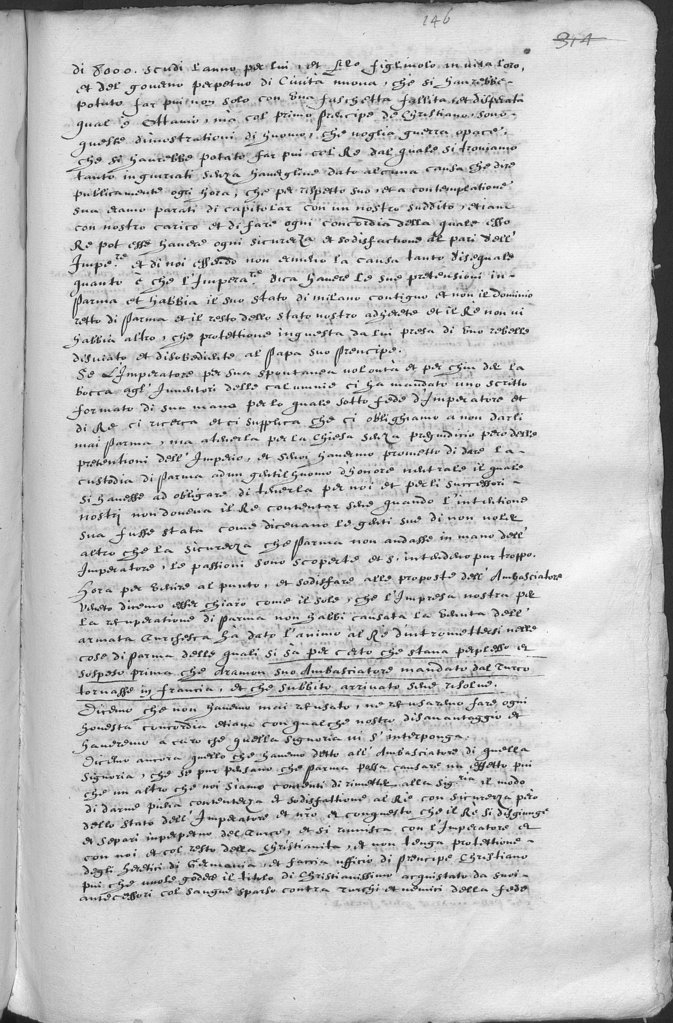 146
314
di 8000. scudi l'anno per lui, et suo figliuolo in vita loro,
et del governo perpetuo di Civita nuova, che si haurebbe
potuto far piu non solo con una faschetta fallita, et disperata
qual'è Ottavio, ma col primo Prencipe de Christiano, sono
queste dimostrationi di huomo, che voglia guerra, o pace,
che si haurebbe potuto far piu col Re dal quale si troviamo
tanto ingiuriati senza havergline dato alcuna causa che dire
publicamente ogni hora, che per rispetto suo, et a contemplatione
sua eramo parati di capitolar con un nostro suddito, etiam
con nostro carico et di fare ogni concordia della quale esso
Re pot esse havere ogni sicurezza et sodisfactione al pari dell'
Impe.re et di noi essendo non eramo la causa tanto diseguale
quanto è che l'Impera.re dica havere le sue pretensioni in
Parma et habbia il suo stato di Milano contiguo et non il dominio
retto di Parma et il resto dello stato nostro adherete et il Re non vi
habbia altro, che protettione ingiusta da lui presa di uno rebelle
disviato et disobediente al Papa suo Prencipe.
Se l'Imperatore per sua spontanea volonta et per chiu der la
bocca agl' Inventori delle calumnie ci ha mandato uno scritto
formato di sua mano per lo quale sotto fede d'Imperatore et
di Re ci ricerca et ci supplica che ci oblighiamo a non darli
mai Parma, ma a tenerla per la Chiesa senza prejuditio pero delle
pretentioni dell' Imperio, et se noi havemo promesso di dare la
custodia di Parma ad un gentilhuomo d'honore neutrale il quale
si havesse ad obligare di tenerla per noi et per li successori
nostri non doveva il Re contentarsene quando l'intentione
sua fusse stata come dicevano le genti sue di non voler
altro che la sicurezza che Parma non andasse in mano dell'
Imperatore, le passioni sono scoperte et s'intendeno pur troppo.
Hora per venire al punto, et sodisfare alle proposte dell' Ambasciatore
Veneto diremo esser chiaro come il sole, che l'Impresa nostra per
la recuperatione di Parma non habbi causata la venuta dell'
armata Turchesca ha dato l'animo al Re d'intromettersi nelle
cose di Parma delle quali si sa per certo che stava perplesso et
sospeso prima che Aramon suo Ambasciatore mandato dal Turco
tornasse in Francia, et che subbito arrivato se ne risolve.
Dicemo che non havemo mai recusato, ne recusaremo fare ogni
honesta concordia etiam con qualche nostro disavantaggio et
haveremo a caro che quella Signoria vi s'interponga.
Dicemo ancora quello che havemo detto all' Ambasciatore di quella
Signoria, che se pur pensano che Parma possa causare un effetto piu
che un altro che noi siamo contenti di rimetter alla Sig.ria il modo
di darne piena contentezza et sodisfattione al Re con sicurezza però
dello stato dell' Imperatore et nro, et con questo che il Re si disgiunge
et separi in perpetuo del Turco, et si riunisca con l'Imperatore et
con noi et col resto della Christianita, et non tenga protettione
degli heretici di Germania, et faccia ufficio di Prencipe Christiano
piu che vuole godere il titolo di Christianissimo acquistato da suoi
antecessori col sangue sparso contra Turchi et nemici della fede